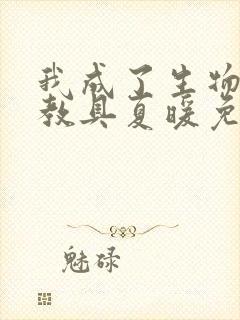 我成了生物
教具夏暖免
魅碌